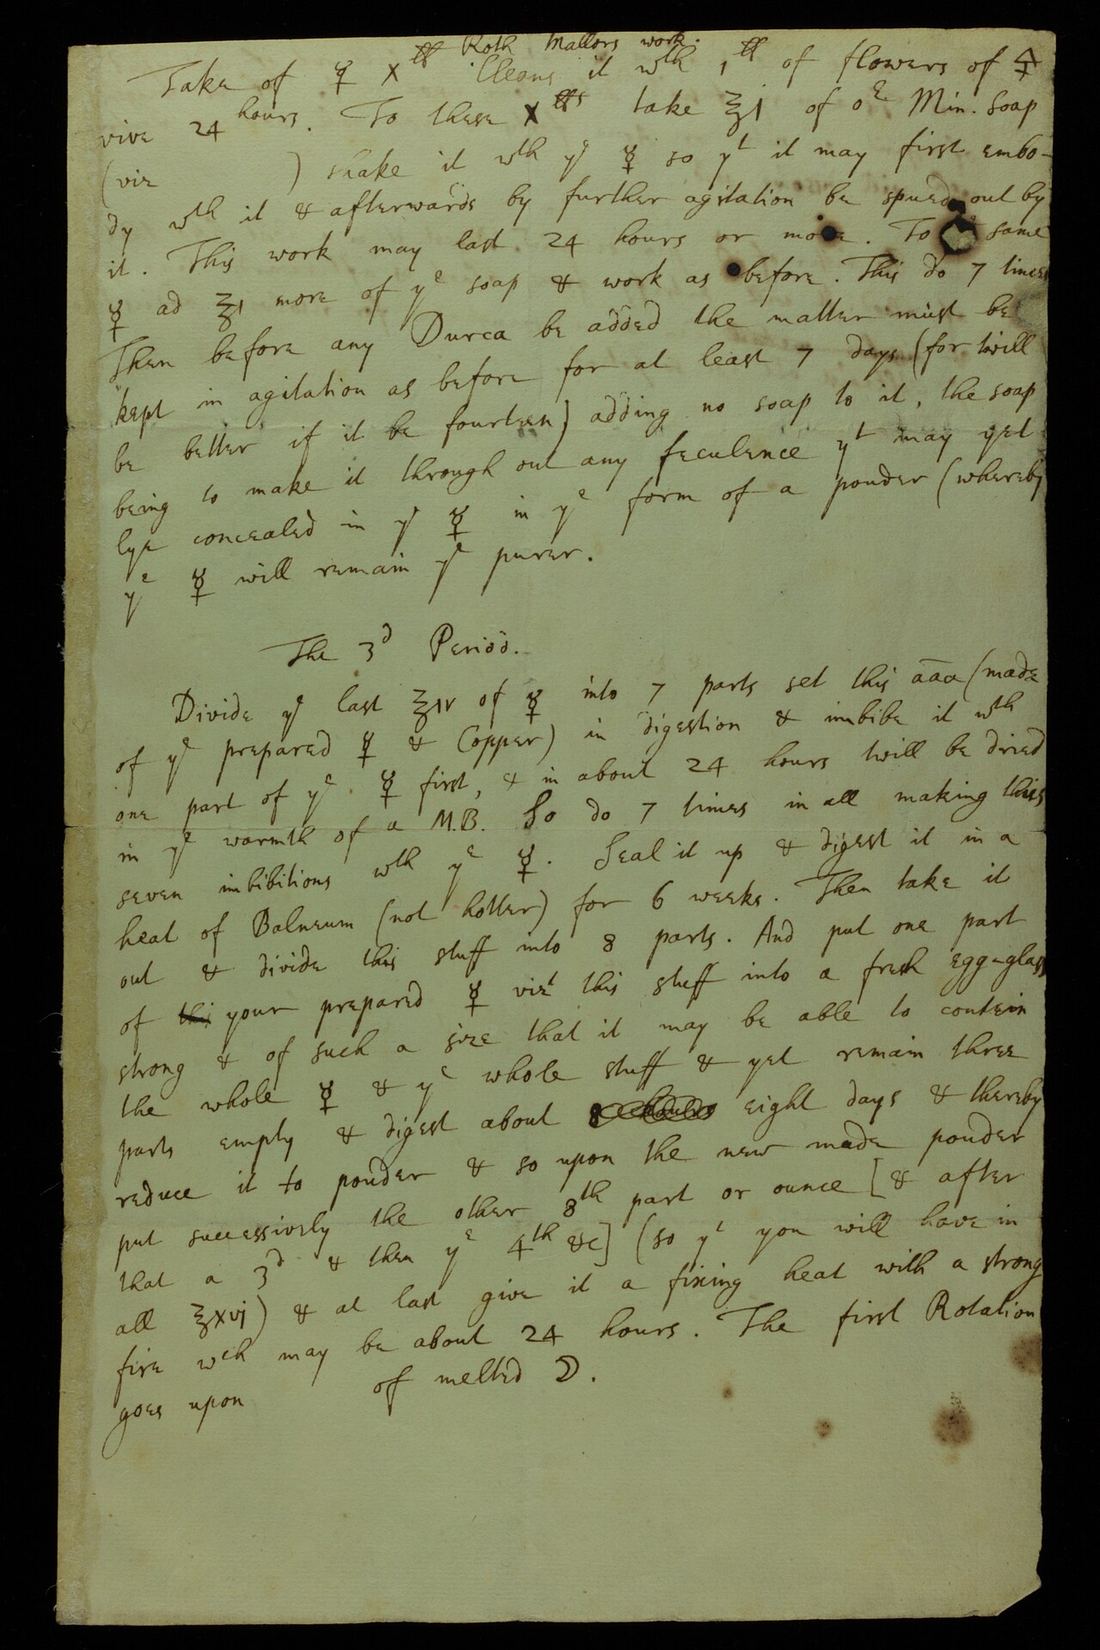 Roth Mallors work.
Take of ☿ X ℔ Cleans it wth 1 ℔ of flowers of 🜍
vive 24 hours. To these X ℔s take ℥j of oe Min. soap
(viz ) shake it wth ye ☿ so yt it may first embo-
dy wth it & afterwards by further agitation be spued out by
it. This work may last 24 hours or more. To same
☿ ad ℥j more of ye soap & work as before. This do 7 times
Then before any Durca be added the matter must be
kept in agitation as before for at least 7 days (for twill
be better if it be fourteen) adding no soap to it, the soap
being to make it through out any feculence yt may yet
lye concealed in ye ☿ in ye form of a pouder (whereby
ye ☿ will remain ye purer.
The 3d Period.
Divide ye last ℥iv of ☿ into 7 parts set this āāa (made
of ye prepared ☿ & Copper) in digestion & imbibe it wth
one part of ye ☿ first, & in about 24 hours twill be dried
in ye warmth of a M.B. So do 7 times in all making this
seven imbibitions wth ye ☿. Seal it up & digest it in a
heat of Balneum (not hotter) for 6 weeks. Then take it
out & divide this stuff into 8 parts. And put one part
of thi your prepared ☿ vizt this stuff into a fresh egg-glass
strong & of such a size that it may be able to contein
the whole ☿ & ye whole stuff & yet remain three
parts empty & digest about 8 eight days & thereby
reduce it to pouder & so upon the new made pouder
put successively the other 8th part or ounce [& after
that a 3d & then ye 4th &c] (so yt you will have in
all ℥xvj) & at last give it a fixing heat with a strong
fire wch may be about 24 hours. The first Rotation
goes upon of melted ☽.